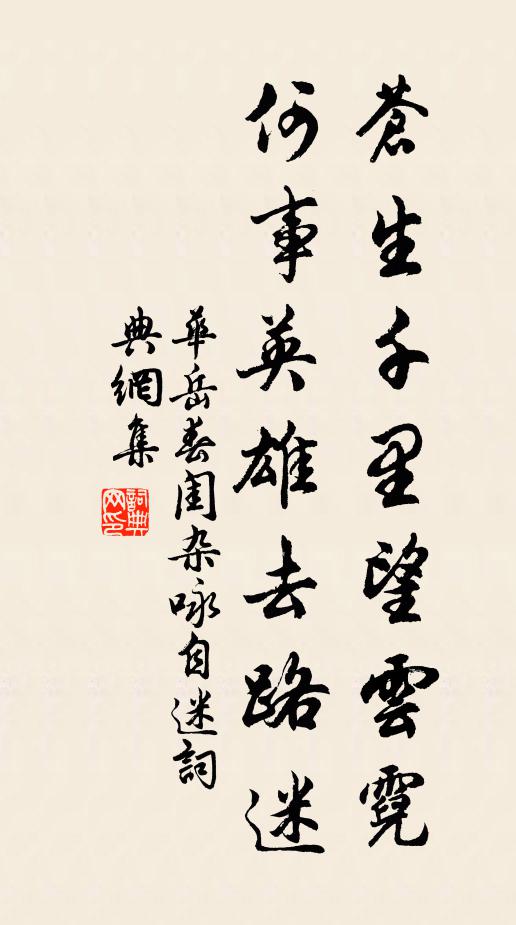 蒼生千里望雲霓
何事英雄去路迷
華岳春闺杂咏自迷詞
典網集
詞典网印